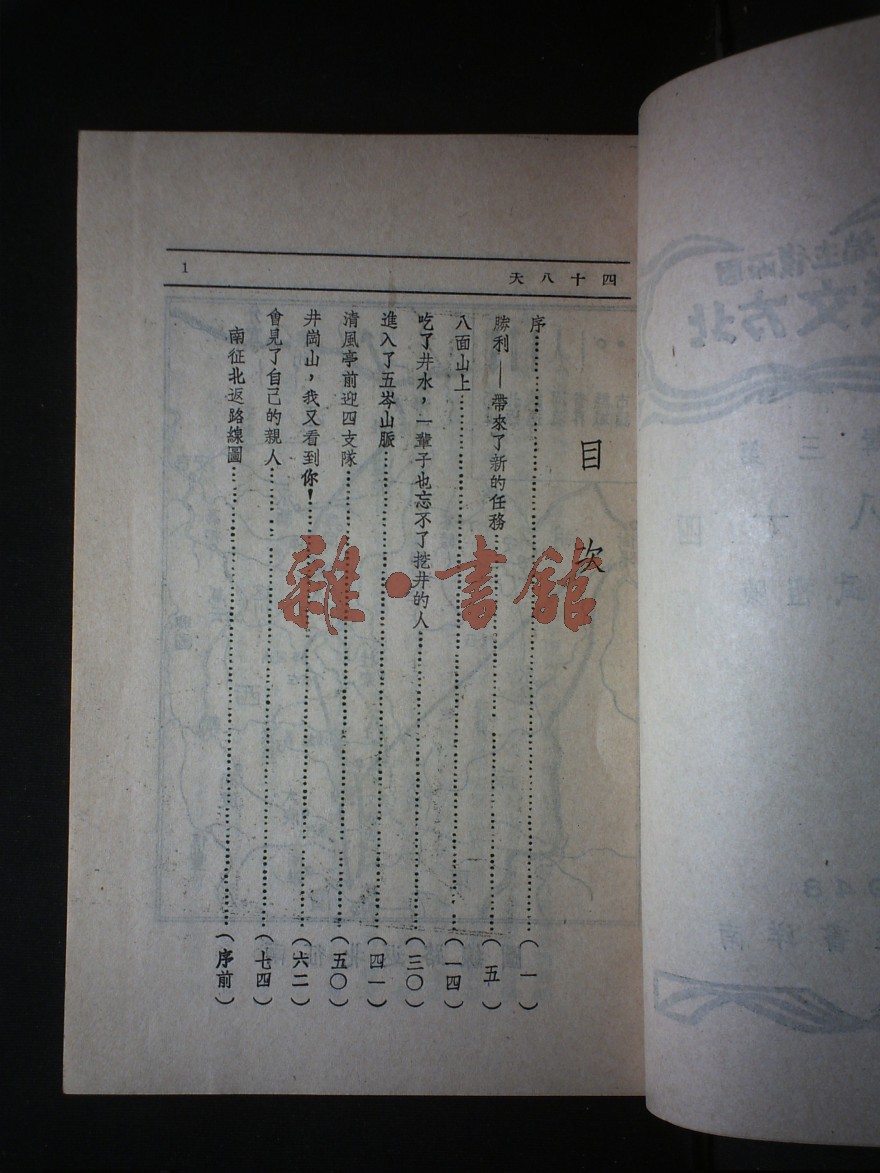 四十八天
1
目次
序…………(一)
勝利——帶來了新的任務…………(五)
八面山上…………(一四)
吃了井水，一輩子也忘不了挖井的人…………(三〇)
進入了五岑山脈…………(四一)
清風亭前迎四支隊…………(五〇)
井崗山，我又看到你！…………(六二)
會見了自己的親人…………(七四)
南征北返路線圖…………(序前)
雜·書館